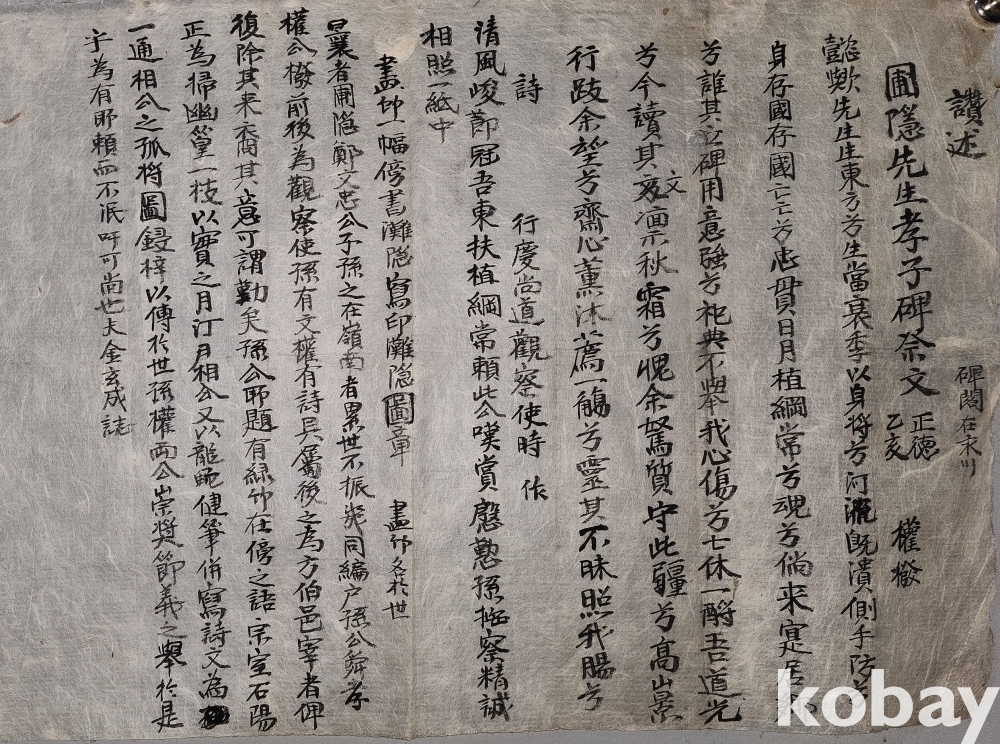 讚述
圃隱先生孝子碑祭文 正德乙亥 權撥
碑閣在永川
懿歟先生生東方兮生當衰季以身將兮河流旣潰側手防兮
身存國存國亡亡兮忠貫日月植綱常兮魂兮倘来寔居
兮誰其立碑用意強兮祀典不擧我心傷兮七休一酹吾道光
兮今讀其文凜秋霜兮愧余駑質守此疆兮高山景
行跂余望兮齋心薰沐薦一觴兮靈其不昧照我腸兮
詩 行慶尚道觀察使時作
清風峻節冠吾東扶植綱常頼此公嘆賞慇懃孫按察精誠
相照一紙中
畵竹一幅傍書灘隐寫印灘隐圖章 畵竹名於世
曩者圃隐鄭文忠公子孫之在嶺南者累世不振幾同編户孫公舜孝
權公撥前後為觀察使孫有文權有詩具屬後之為方伯邑宰者俾
復除其来裔其意可謂勤矣孫公所題有緑竹在傍之語宗室石陽
正為掃幽篁一枝以實之月汀月相公又以龍蛇健筆倂寫詩文為
一通相公之孤將圖鋟梓以傳於世孫權兩公崇奬節義之擧於是
乎為有所頼而不泯吁可尚也夫金玄成誌
kobay